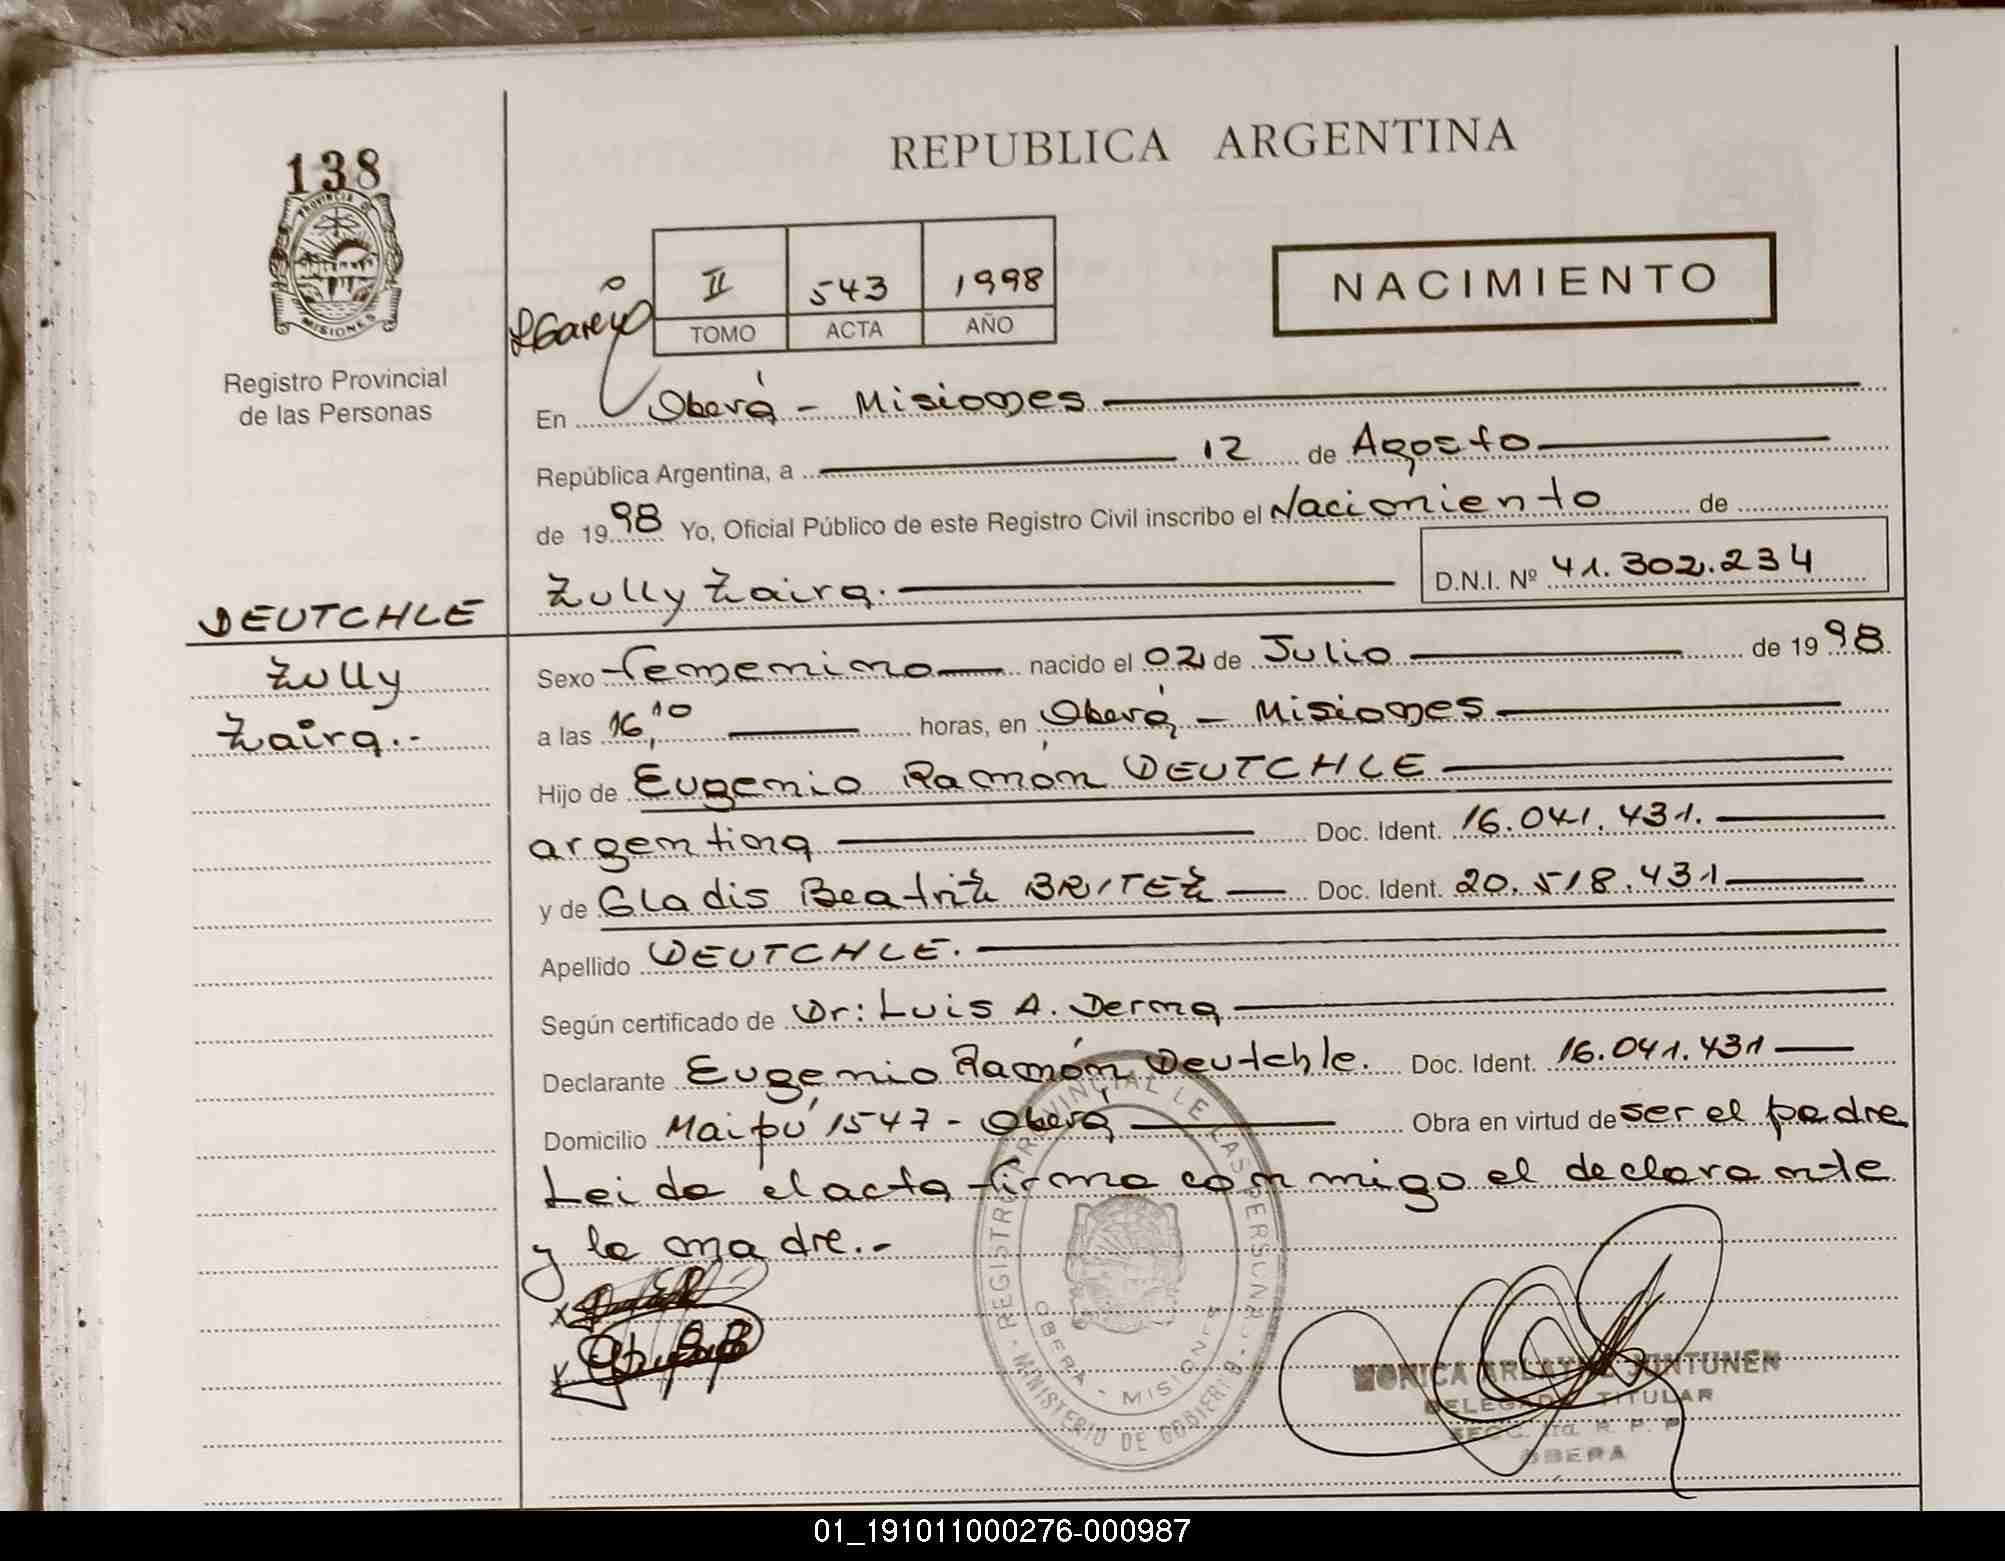 138
PROVINCIA DE
MISIONES
Registro Provincial
de las Personas
DEUTCHLE
Zully
Zaira.-
REPUBLICA ARGENTINA
II 543 1998
TOMO ACTA AÑO
NACIMIENTO
En Oberá - Misiones
República Argentina, a 12 de Agosto
de 1998 Yo, Oficial Público de este Registro Civil inscribo el Nacimiento de
Zully Zaira. D.N.I. Nº 41.302.234
Sexo femenino nacido el 02 de Julio de 1998
a las 16,10 horas, en Oberá - Misiones
Hijo de Eugenio Ramón DEUTCHLE
argentina Doc. Ident. 16.041.431.
y de Gladis Beatriz BRITEZ Doc. Ident. 20.518.431
Apellido DEUTCHLE.
Según certificado de Dr: Luis A. Derna
Declarante Eugenio Ramón Deutchle. Doc. Ident. 16.041.431
Domicilio Maipú 1547 - Oberá Obra en virtud de ser el padre
Leida el acta firma conmigo el declarante
y la madre.-
REGISTRO PROVINCIAL DE LAS PERSONAS
OBERA - MISIONES
MINISTERIO DE GOBIERNO
MONICA JUNTUNEN
DELEGADA TITULAR
SECC. 1ra. R. P. P.
OBERA
01_191011000276-000987